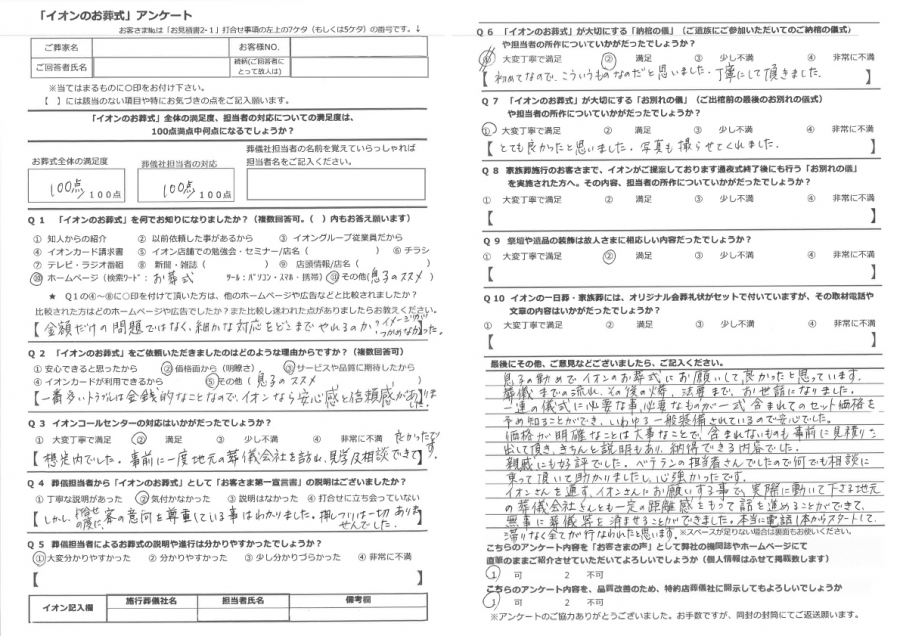 「イオンのお葬式」アンケート
お客さまNo.は「お見積書2-1」打合せ事項の左上の7ケタ（もしくは5ケタ）の番号です。↓
ご葬家名
お客様NO.
ご回答者氏名
続柄(ご回答者にとって故人は)
※当てはまるものに○印をお付け下さい。
【　】には該当のない項目や特にお気づきの点をご記入願います。
「イオンのお葬式」全体の満足度、担当者の対応についての満足度は、
100点満点中何点になるでしょうか？
お葬式全体の満足度
葬儀社担当者の対応
葬儀社担当者の名前を覚えていらっしゃれば
担当者名をご記入ください。
100点 100点
100点 100点
Q 1 「イオンのお葬式」を何でお知りになりましたか？（複数回答可。（　）内もお答え願います）
① 知人からの紹介 ② 以前依頼した事があるから ③ イオングループ従業員だから
④ イオンカード請求書 ⑤ イオン店舗での勉強会・セミナー/店名（　） ⑥ チラシ
⑦ テレビ・ラジオ番組 ⑧ 新聞・雑誌（　） ⑨ 店頭情報/店名（　）
⑩ ホームページ（検索ワード：お葬式 ツール：パソコン・スマホ・携帯）⑪ その他(息子のススメ)
★ Q1の④～⑧に○印を付けて頂いた方は、他のホームページや広告などと比較されましたか？
比較された方はどのホームページや広告でしたか？また比較し迷われた点がありましたらお教えください。
【金額だけの問題ではなく、細かな対応をどこまでやれるのか？イメージがつかめなかった。
Q 2 「イオンのお葬式」をご依頼いただきましたのはどのような理由からですか？（複数回答可）
① 安心できると思ったから ② 価格面から（明瞭さ） ③ サービスや品質に期待したから
④ イオンカードが利用できるから ⑤ その他（息子のススメ
【一番多いトラブルは金銭的なことなので、イオンなら安心感と信頼感がありました。
Q 3 イオンコールセンターの対応はいかがだったでしょうか？
① 大変丁寧で満足 ② 満足 ③ 少し不満 ④ 非常に不満
【想定内でした。事前に一度地元の葬儀会社を訪れ、見学及相談できて良かったです。】
Q 4 葬儀担当者から「イオンのお葬式」として「お客さま第一宣言書」の説明はございましたか？
① 丁寧な説明があった ② 気付かなかった ③ 説明はなかった ④ 打合せに立ち会っていない
【しかし、打合せの度に、客の意向を尊重している事はわかりました。押しつけは一切ありませんでした。】
Q 5 葬儀担当者によるお葬式の説明や進行は分かりやすかったでしょうか？
① 大変分かりやすかった ② 分かりやすかった ③ 少し分かりづらかった ④ 非常に不満
【　】
イオン記入欄
施行葬儀社名
担当者氏名
備考欄
Q 6 「イオンのお葬式」が大切にする「納棺の儀」（ご遺族にご参加いただいてのご納棺の儀式）
や担当者の所作についていかがだったでしょうか？
① 大変丁寧で満足 ② 満足 ③ 少し不満 ④ 非常に不満
【初めてなので、こういうものなのだと思いました。丁寧にして頂きました。】
Q 7 「イオンのお葬式」が大切にする「お別れの儀」（ご出棺前の最後のお別れの儀式）
や担当者の所作についていかがだったでしょうか？
① 大変丁寧で満足 ② 満足 ③ 少し不満 ④ 非常に不満
【とても良かったと思いました。写真も撮らせてくれました。】
Q 8 家族葬施行のお客さまで、イオンがご提案しております通夜式終了後にも行う「お別れの儀」
を実施された方へ。その内容、担当者の所作についていかがだったでしょうか？
① 大変丁寧で満足 ② 満足 ③ 少し不満 ④ 非常に不満
【　】
Q 9 祭壇や遺品の装飾は故人さまに相応しい内容だったでしょうか？
① 大変丁寧で満足 ② 満足 ③ 少し不満 ④ 非常に不満
【　】
Q 10 イオンの一日葬・家族葬には、オリジナル会葬礼状がセットで付いていますが、その取材電話や
文章の内容はいかがだったでしょうか？
① 大変丁寧で満足 ② 満足 ③ 少し不満 ④ 非常に不満
【　】
最後にその他、ご意見などございましたら、ご記入ください。
息子の勧めでイオンのお葬式にお願いして良かったと思っています。
葬儀までの流れ、その後の事、法要まで、お世話になりました。
一連の儀式に必要な事、必要なものが一式含まれてのセット価格を
予め知ることができ、いわゆる一般装備されているので安心でした。
価格が明確なことは大事なことで、含まれないものも事前に見積りを
出して頂き、きちんと説明もあり、納得できる内容でした。
親戚にも好評でした。ベテランの担当者さんでしたので何でも相談に
乗って頂いて助かりましたし、心強かったです。
イオンさんを通す、イオンさんにお願いする事で、実際に動いて下さる地元
の葬儀会社さんとも一定の距離感をもって話を進めることができて、
無事に葬儀等を済ませることができました。本当に電話1本からスタートして、
滞りなく全てが行なわれたと思います。※スペースが足りない場合は裏面もお使いください。
こちらのアンケート内容を「お客さまの声」として弊社の機関誌やホームページにて
直筆のままご紹介させていただいてよろしいでしょうか（個人情報はふせて掲載致します）
1 可 2 不可
こちらのアンケート内容を、品質改善のため、特約店葬儀社に開示してもよろしいでしょうか
1 可 2 不可
※アンケートのご協力ありがとうございました。お手数ですが、同封の封筒にてご返送願います。